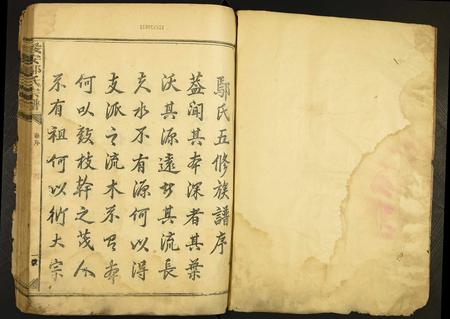 鄢氏五修族譜序
蓋聞其本深者其葉
沃其源遠者其流長
夫水不有源何以得
支派之流木不有本
何以發枝幹之茂人
不有祖何以衍大宗
鄢氏宗譜